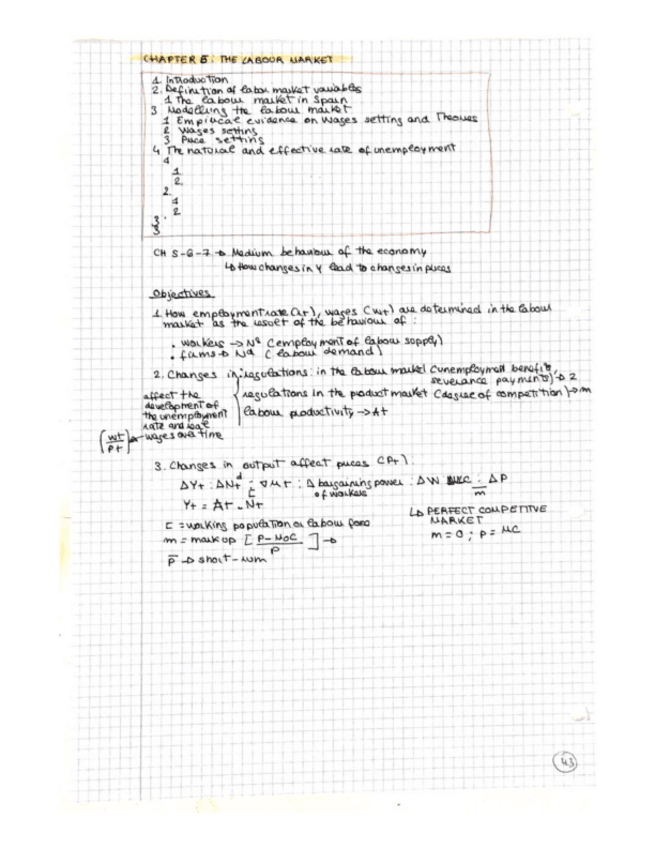 CHAPTER 5: THE LABOUR MARKET
1. Introduction
2. Definition of labor market variables
1 The labour market in Spain
3 Modelling the labour market
1 Empirical evidence on wages setting and Theories
2 Wages setting
3 Price setting
4 The natural and effective rate of unemployment
1
1
2.
2.
1
2
3.
3
CH 5-6-7 → Medium behaviour of the economy
↳ How changes in Y lead to changes in prices
Objectives
1. How employment rate, wages (wt) are determined in the labour
market as the result of the behaviour of :
• workers → Ns (employment of labour supply)
• firms → Nd (labour demand)
2. Changes in: regulations: in the labour market (unemployment benefits,
severance payments) → z
regulations in the product market (degree of competition) → m
labour productivity → At
affect the
development of
the unemployment
rate and real
wages over time
(wt/Pt)
3. Changes in output affect prices (Pt)
ΔYt : ΔNt d : ∇Mt : Δ bargaining power : ΔW : ΔP
L of workers m
Yt = At · Nt
L = working population or labour force
m = mark up [P - MgC / P] →
P̄ → short-run
↳ PERFECT COMPETITIVE
MARKET
m = 0 ; P = MC
43